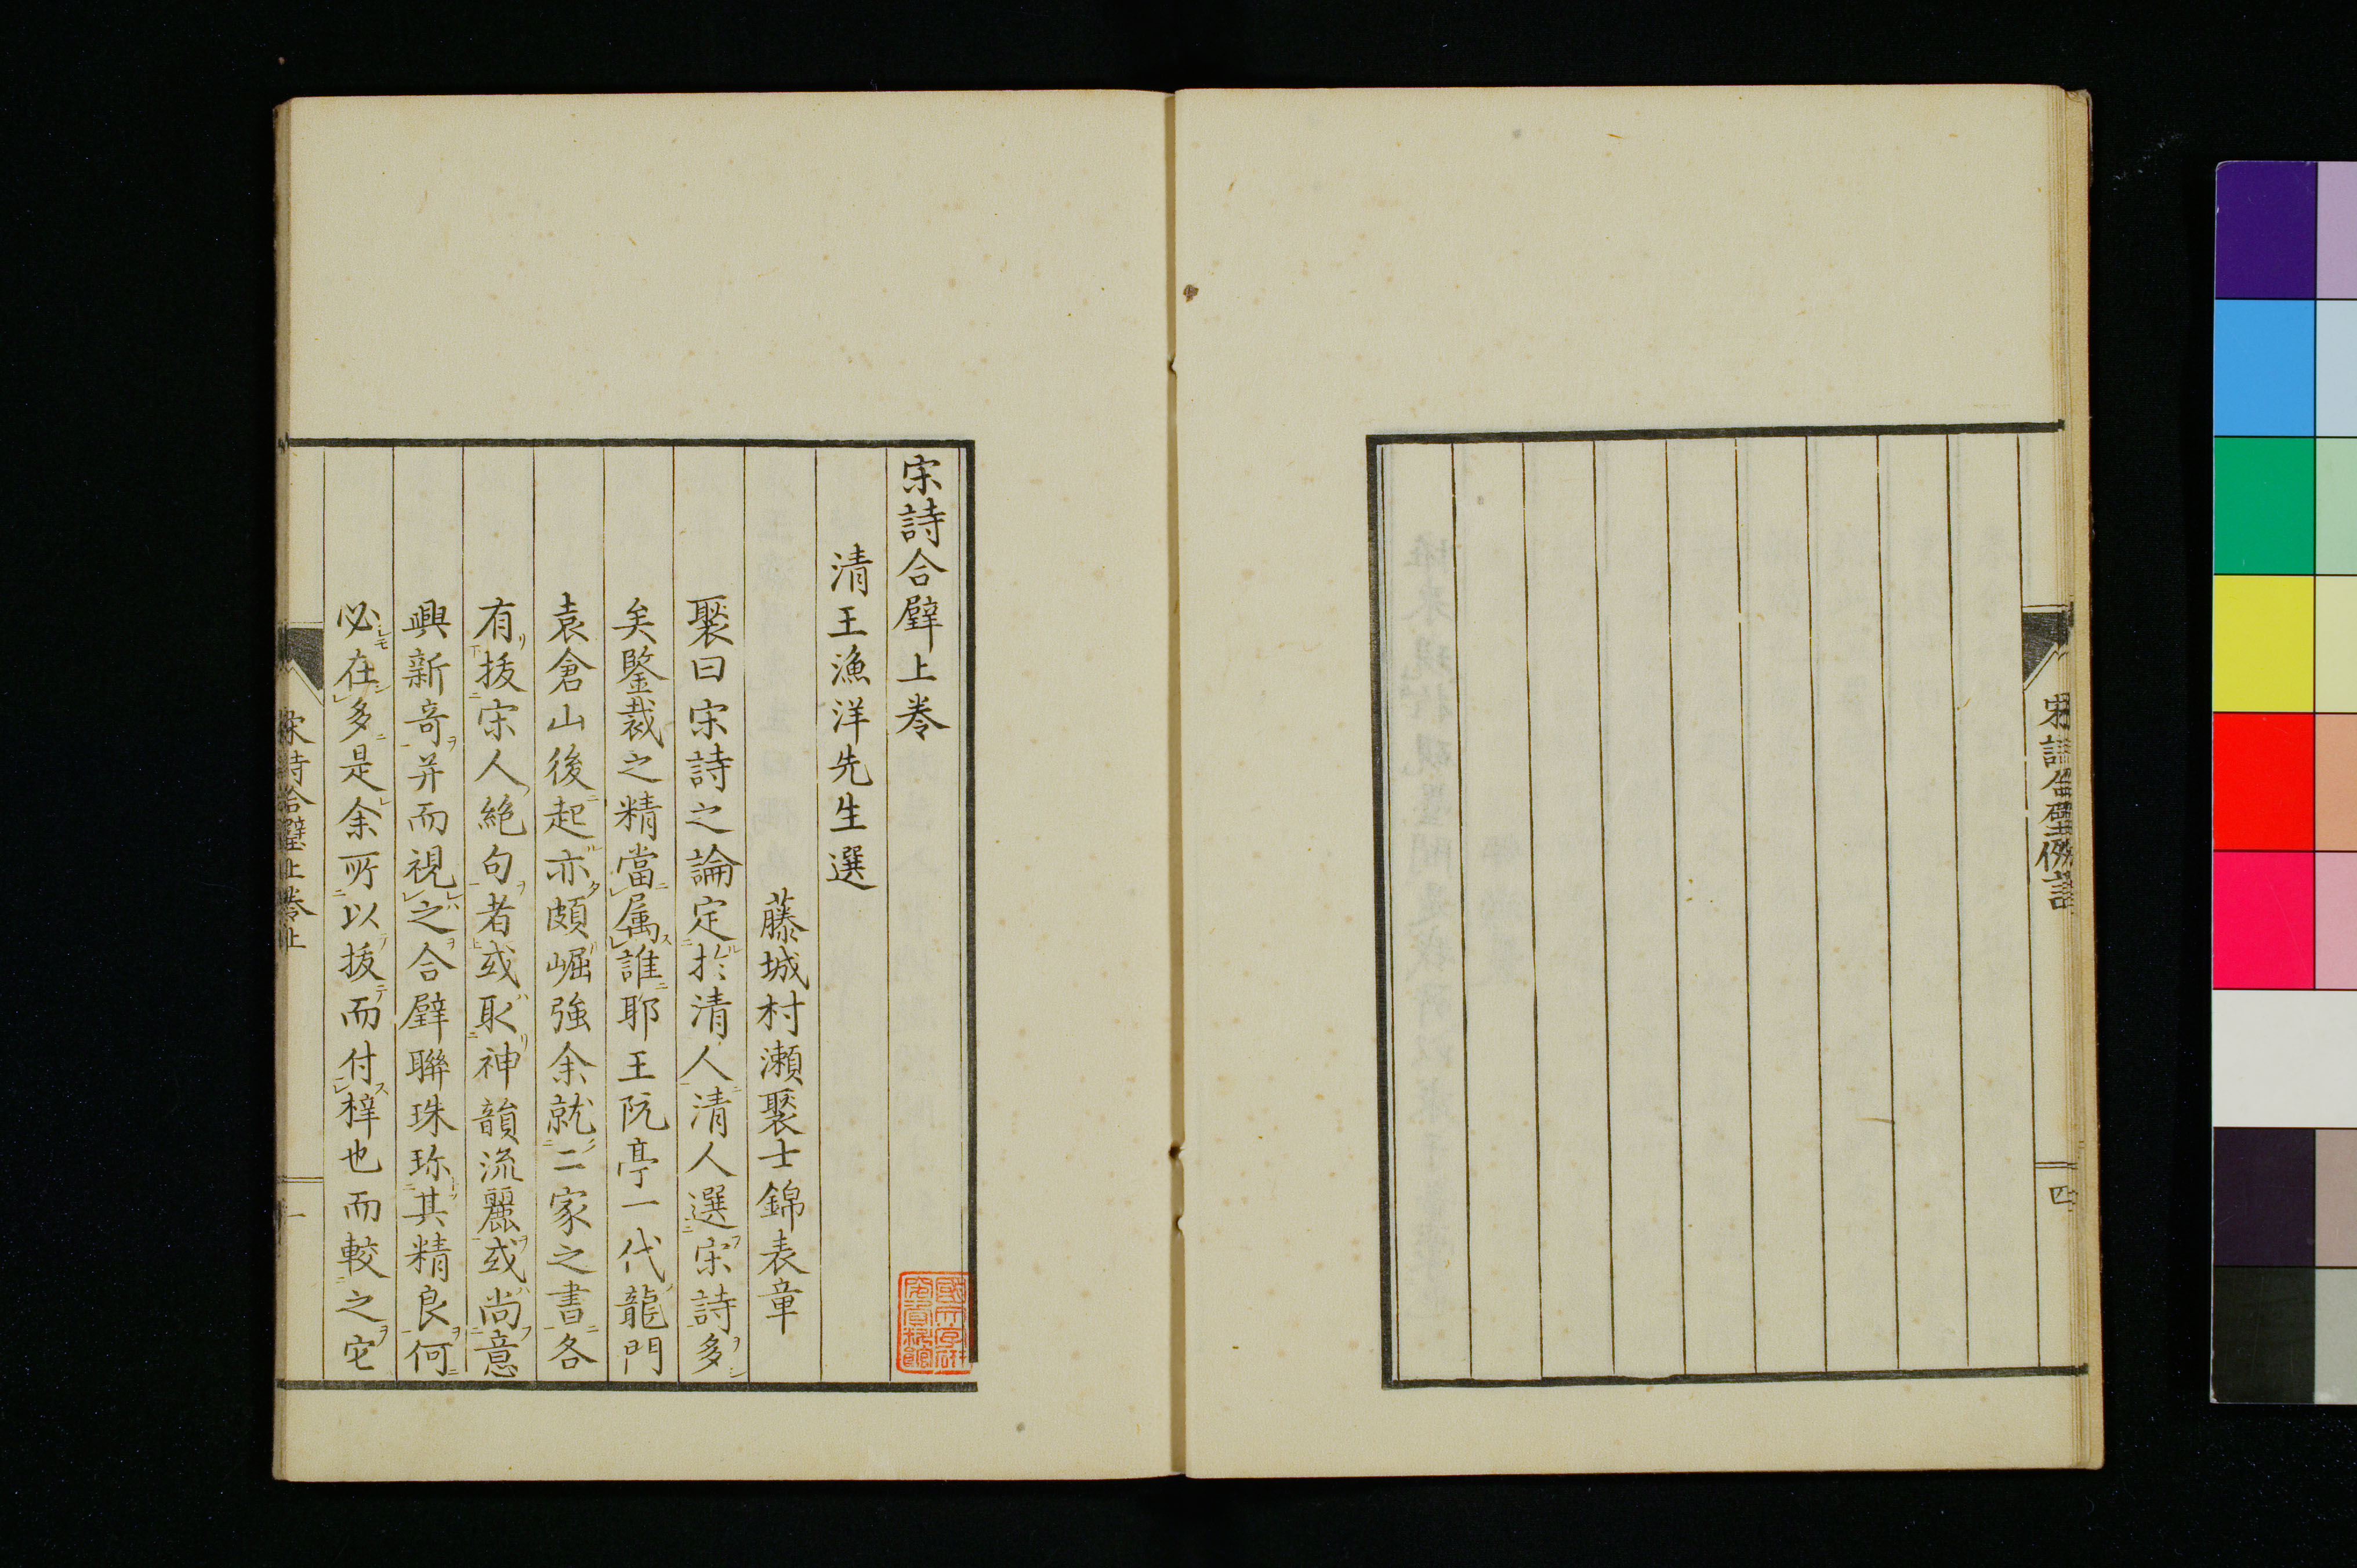 宋詩合璧例言
四
宋詩合璧上卷
清王漁洋先生選
藤城村瀬褧士錦表章
褧曰宋詩之論定於清人清人選宋詩多
矣鑒裁之精當属誰耶王阮亭一代龍門
袁倉山後起亦頗崛強余就二家之書各
有抜宋人絶句者或取神韻流麗或尚意
興新奇并而視之合璧聯珠珎其精良何
必在多是余所以抜而付梓也而較之宅
宋詩合璧上卷上
一